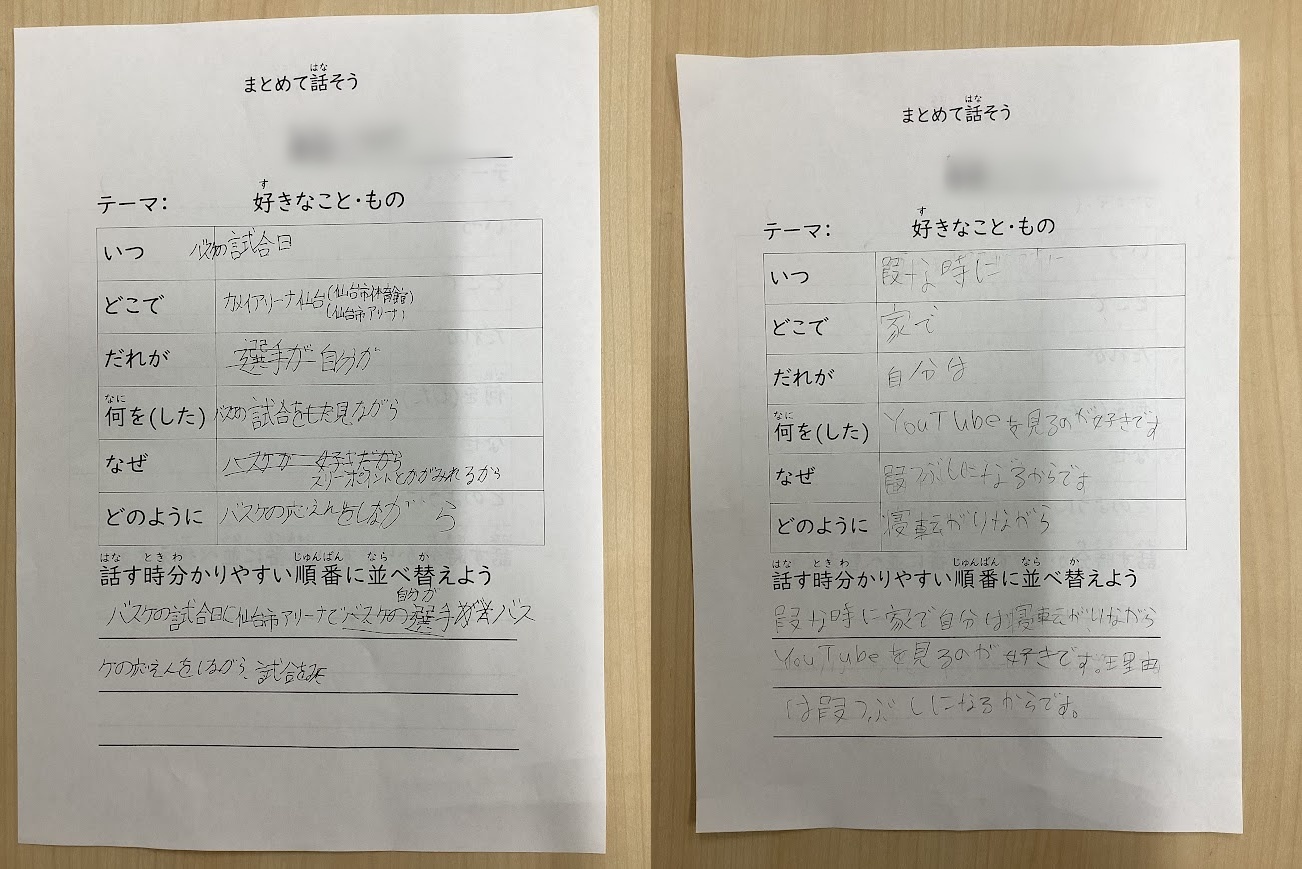 まとめて話そう
はな
テーマ: 好きなこと・もの
す
いつ バスケの試合日
どこで カメイアリーナ仙台(仙台市体育館)
(仙台市アリーナ)
だれが 選手が 自分が
何を(した) バスケの試合を見ながら
なに
なぜ バスケが好きだから
スリーポイントとかがみれるから
どのように バスケの応えんをしながら
話す時分かりやすい順番に並べ替えよう
はな とき わ じゅんばん なら か
自分が
バスケの試合日に仙台市アリーナでバスケの選手がバス
ケの応えんをしながら、試合をみ
まとめて話そう
はな
テーマ: 好きなこと・もの
す
いつ 暇な時に
どこで 家で
だれが 自分は
何を(した) YouTubeを見るのが好きです
なに
なぜ 暇つぶしになるからです
どのように 寝転がりながら
話す時分かりやすい順番に並べ替えよう
はな とき わ じゅんばん なら か
暇な時に家で自分は寝転がりながら
YouTubeを見るのが好きです。理由
は暇つぶしになるからです。